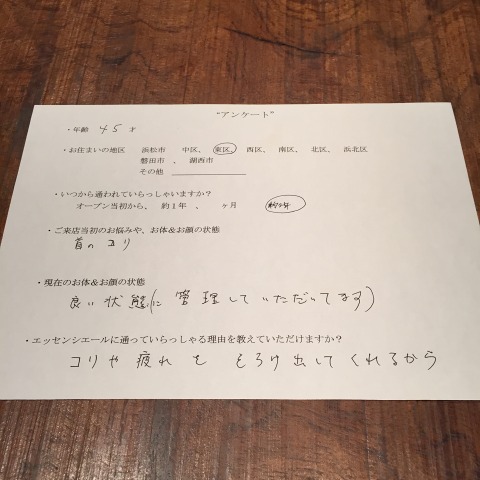 “アンケート”
・年齢 45 才
・お住まいの地区 浜松市 中区、 東区、 西区、 南区、 北区、 浜北区
磐田市 、 湖西市
その他
・いつから通われていらっしゃいますか？
オープン当初から、 約1年 、 ヶ月
・ご来店当初のお悩みや、お体&お顔の状態
首のコリ
・現在のお体&お顔の状態
良い状態(に管理していただいてます)
・エッセンシエールに通っていらっしゃる理由を教えていただけますか？
コリや疲れをもろけ出してくれるから